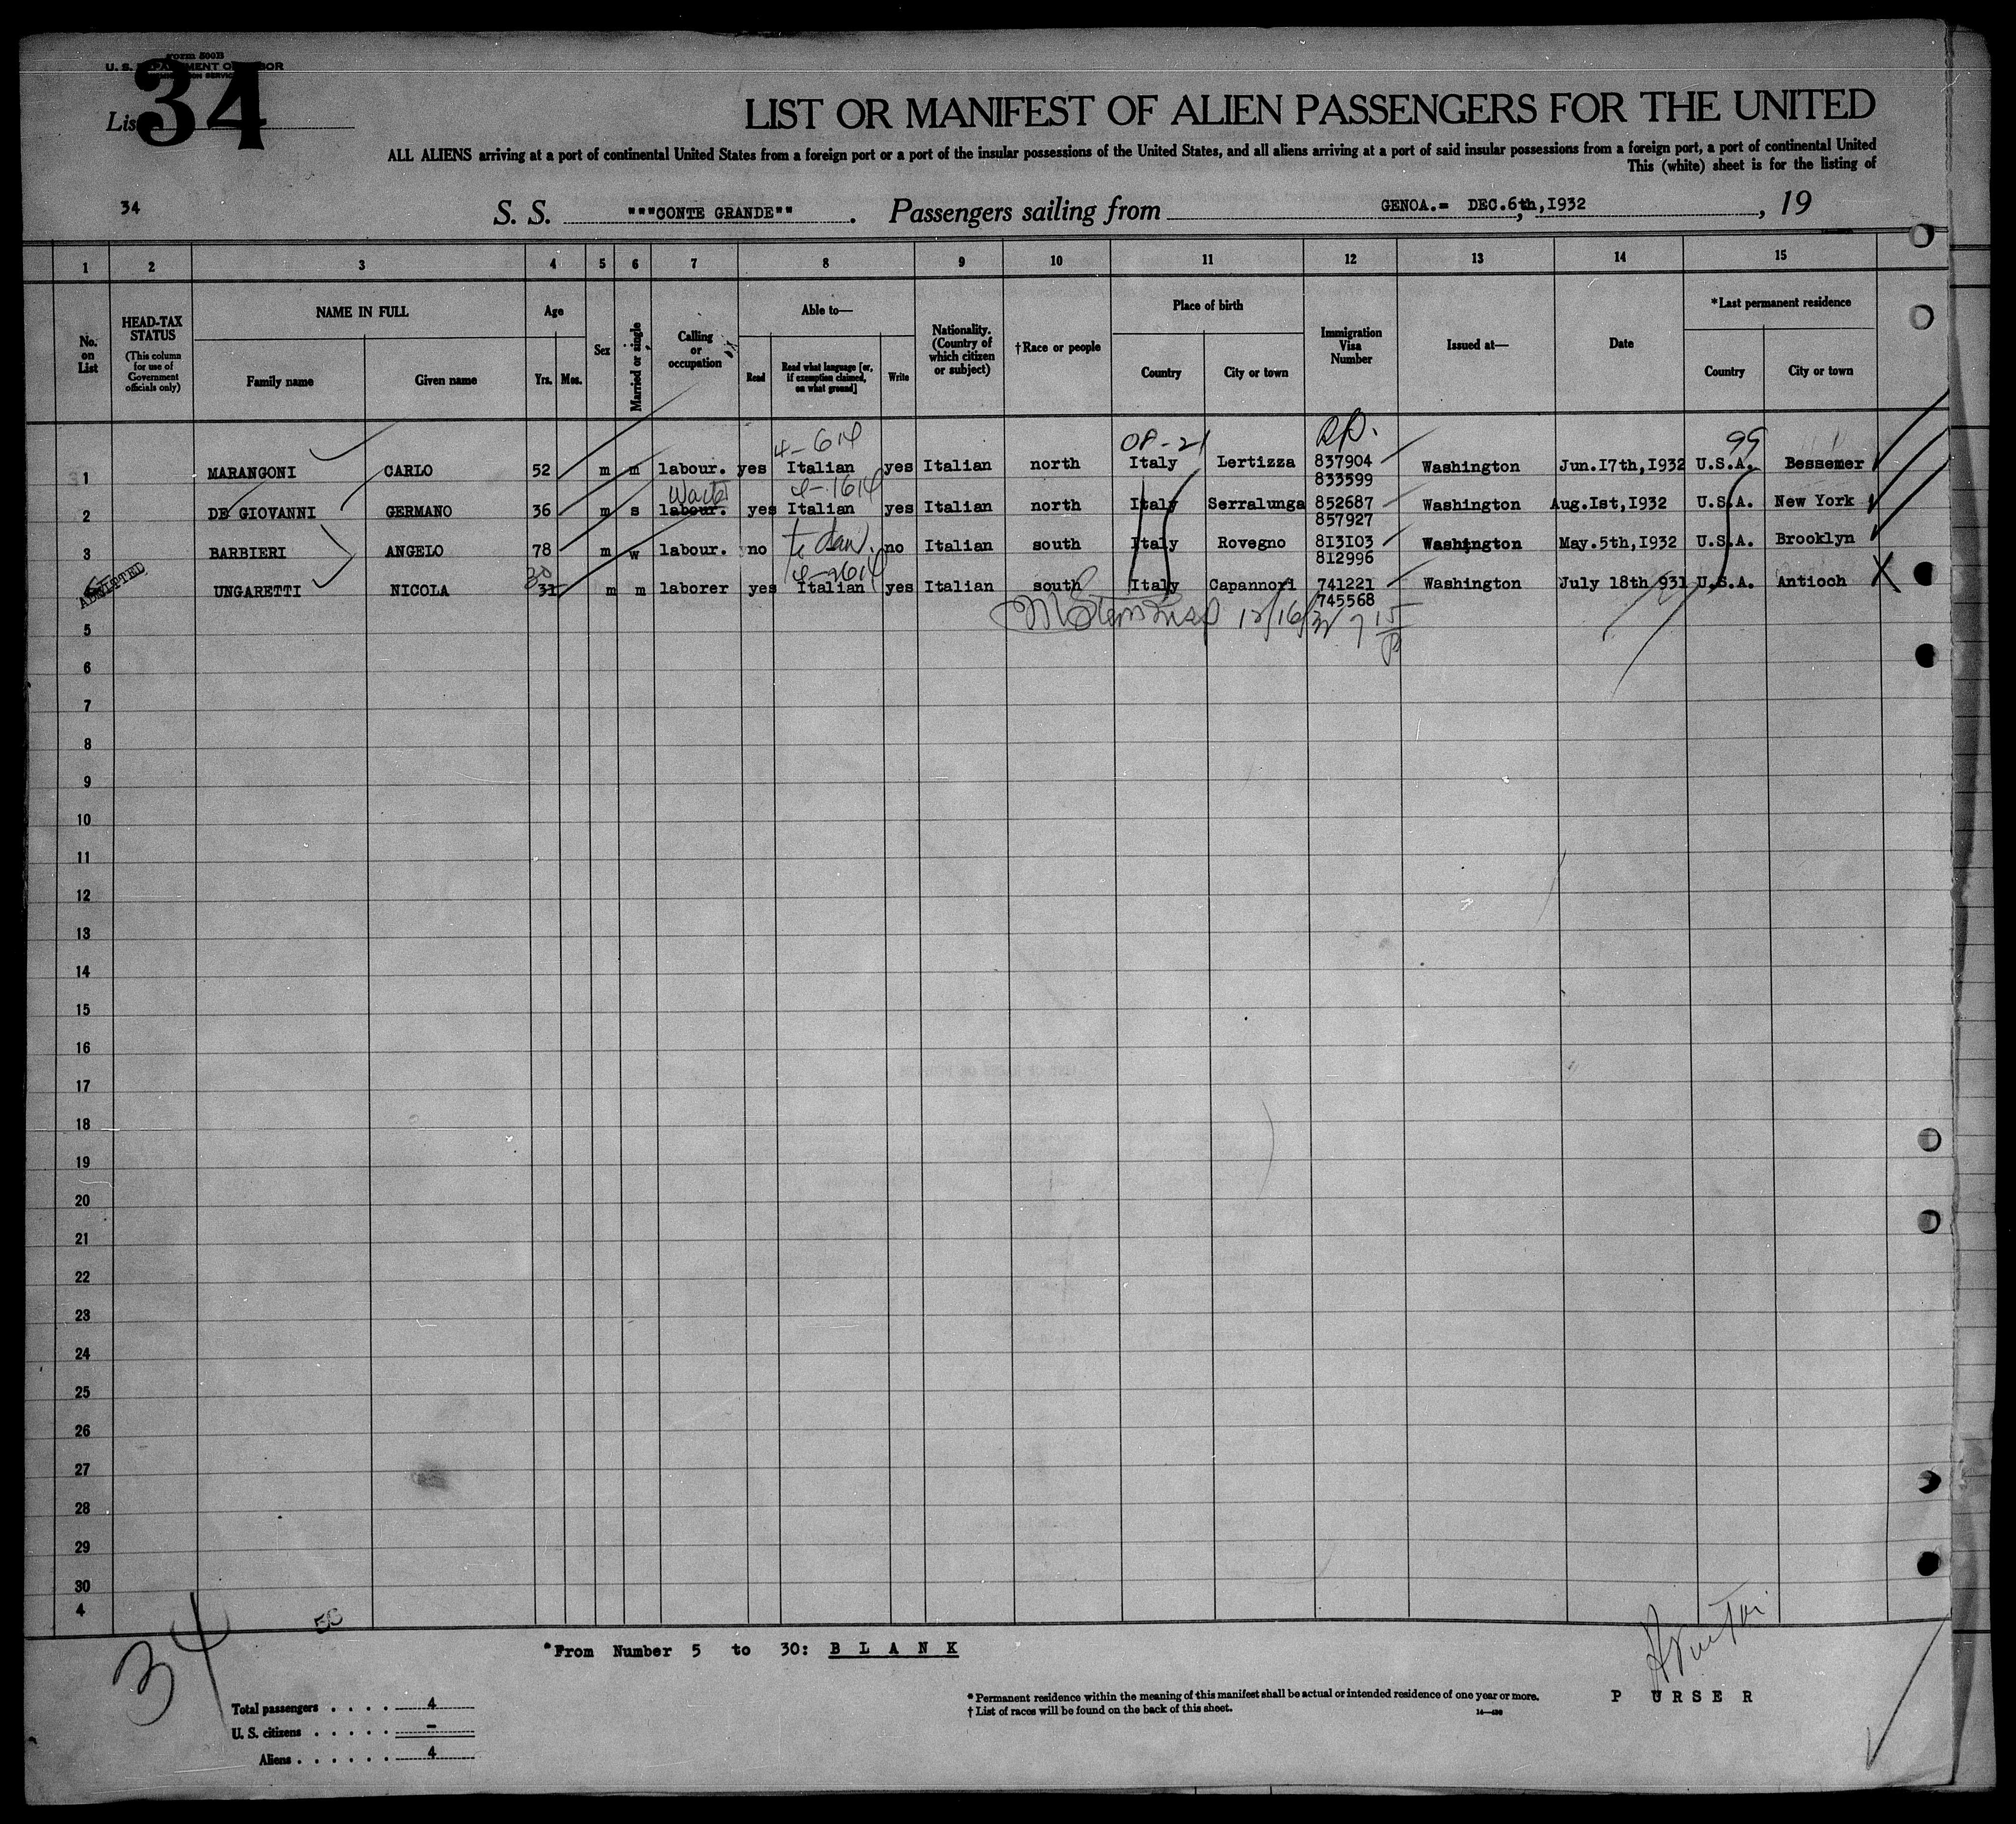 Form 500B
U. S. DEPARTMENT OF LABOR
34
List
LIST OR MANIFEST OF ALIEN PASSENGERS FOR THE UNITED
ALL ALIENS arriving at a port of continental United States from a foreign port or a port of the insular possessions of the United States, and all aliens arriving at a port of said insular possessions from a foreign port, a port of continental United
This (white) sheet is for the listing of
34 S. S. """CONTE GRANDE"" . Passengers sailing from GENOA.= DEC.6th,1932 , 19
1 2 3 4 5 6 7 8 9 10 11 12 13 14 15
No. on List
HEAD-TAX STATUS (This column for use of Government officials only)
NAME IN FULL
Family name Given name
Age
Yrs. Mos.
Sex
Married or single
Calling or occupation
Able to—
Read Read what language [or, if exemption claimed, on what ground] Write
Nationality. (Country of which citizen or subject)
†Race or people
Place of birth
Country City or town
Immigration Visa Number
Issued at—
Date
*Last permanent residence
Country City or town
4-614 99
1 MARANGONI CARLO 52 m m labour. yes Italian yes Italian north Italy Lertizza 837904 Washington Jun.17th,1932 U.S.A. Bessemer
833599
4-1614
2 DE GIOVANNI GERMANO 36 m s labour. yes Italian yes Italian north Italy Serralunga 852687 Washington Aug.1st,1932 U.S.A. New York
857927
3 BARBIERI ANGELO 78 m w labour. no no Italian south Italy Rovegno 813103 Washington May.5th,1932 U.S.A. Brooklyn
812996
ADMITTED 30
UNGARETTI NICOLA 31 m m laborer yes Italian yes Italian south Italy Capannori 741221 Washington July 18th 931 U.S.A. Antioch
745568
12/16/32 7 15
5
6
7
8
9
10
11
12
13
14
15
16
17
18
19
20
21
22
23
24
25
26
27
28
29
30
4
34
*From Number 5 to 30: B L A N K
Total passengers . . . . 4
U. S. citizens . . . . . –
Aliens . . . . . . 4
* Permanent residence within the meaning of this manifest shall be actual or intended residence of one year or more.
† List of races will be found on the back of this sheet.
P URSER